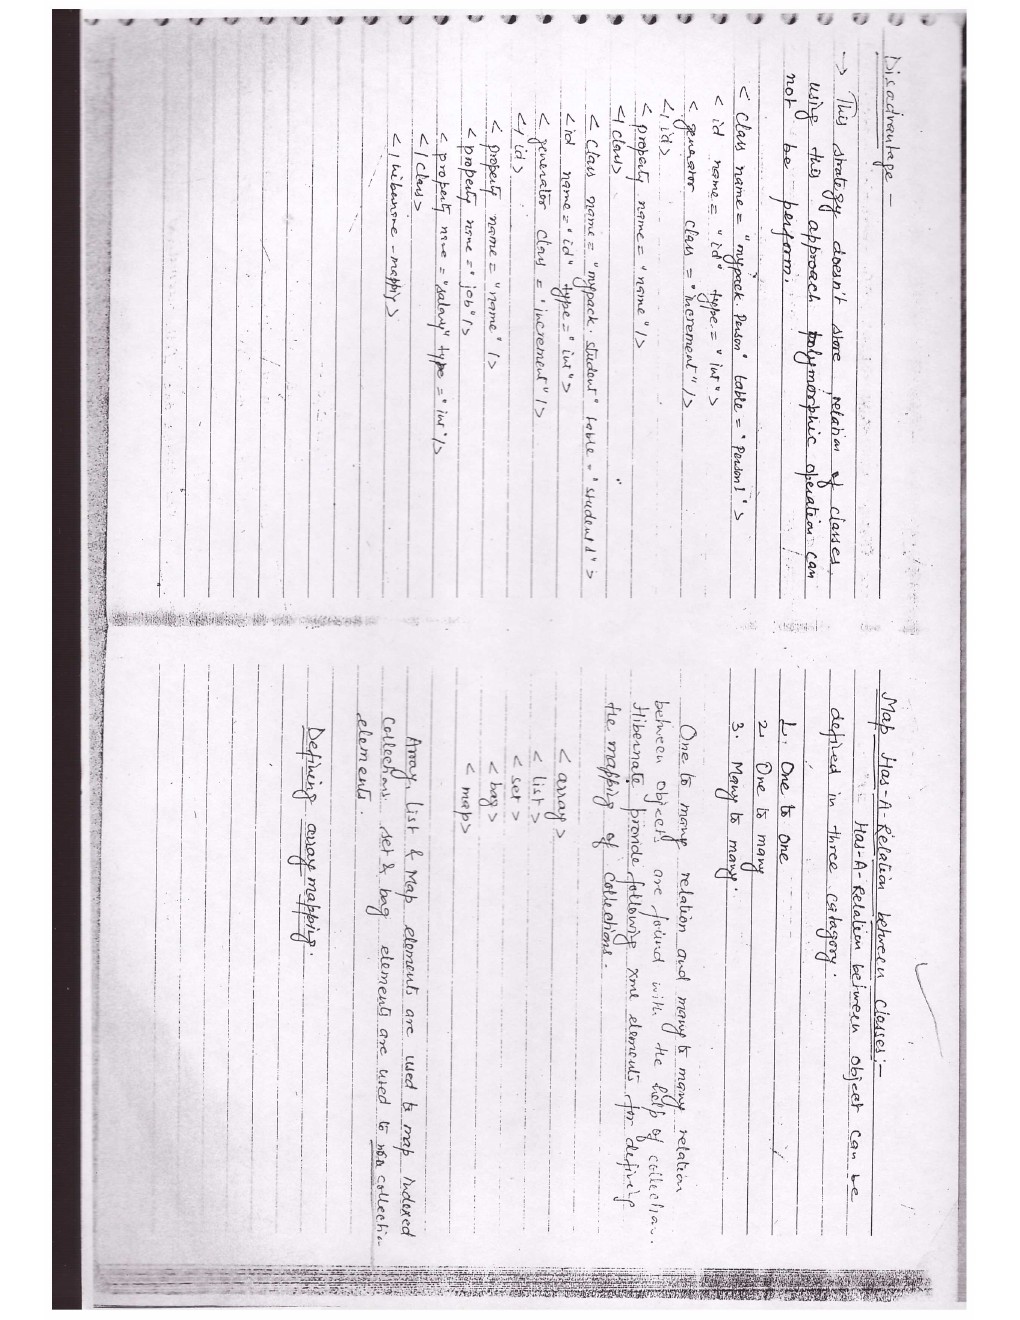 Disadvantage –
→ This strategy doesn't store relation of classes,
using this approach polymorphic operation can
not be perform.
< Class name = "mypack. Person" table = "Person1" >
< id name = "id" type = "int">
< generator class = "increment" />
</ id>
< property name = "name" />
</ class>
< Class name = "mypack. student" table = "student1" >
<id name = "id" type = "int">
< generator class = "increment" />
</ id>
< property name = "name" />
< property name = "job" />
< property name = "salary" type = "int" />
</ Class>
</ hibernate - mapping>
Map Has-A-Relation between Classes:–
Has-A-Relation between object can be
defined in three catagory.
1. One to one
2. One to many
3. Many to many.
One to many relation and many to many relation
between objects are found with the help of collection.
Hibernate provide following xml elements for defining
the mapping of collections.
< array >
< list >
< set >
< bag >
< map>
Array, list & Map elements are used to map indexed
Collections. set & bag elements are used to non collection
elements.
Defining array mapping.